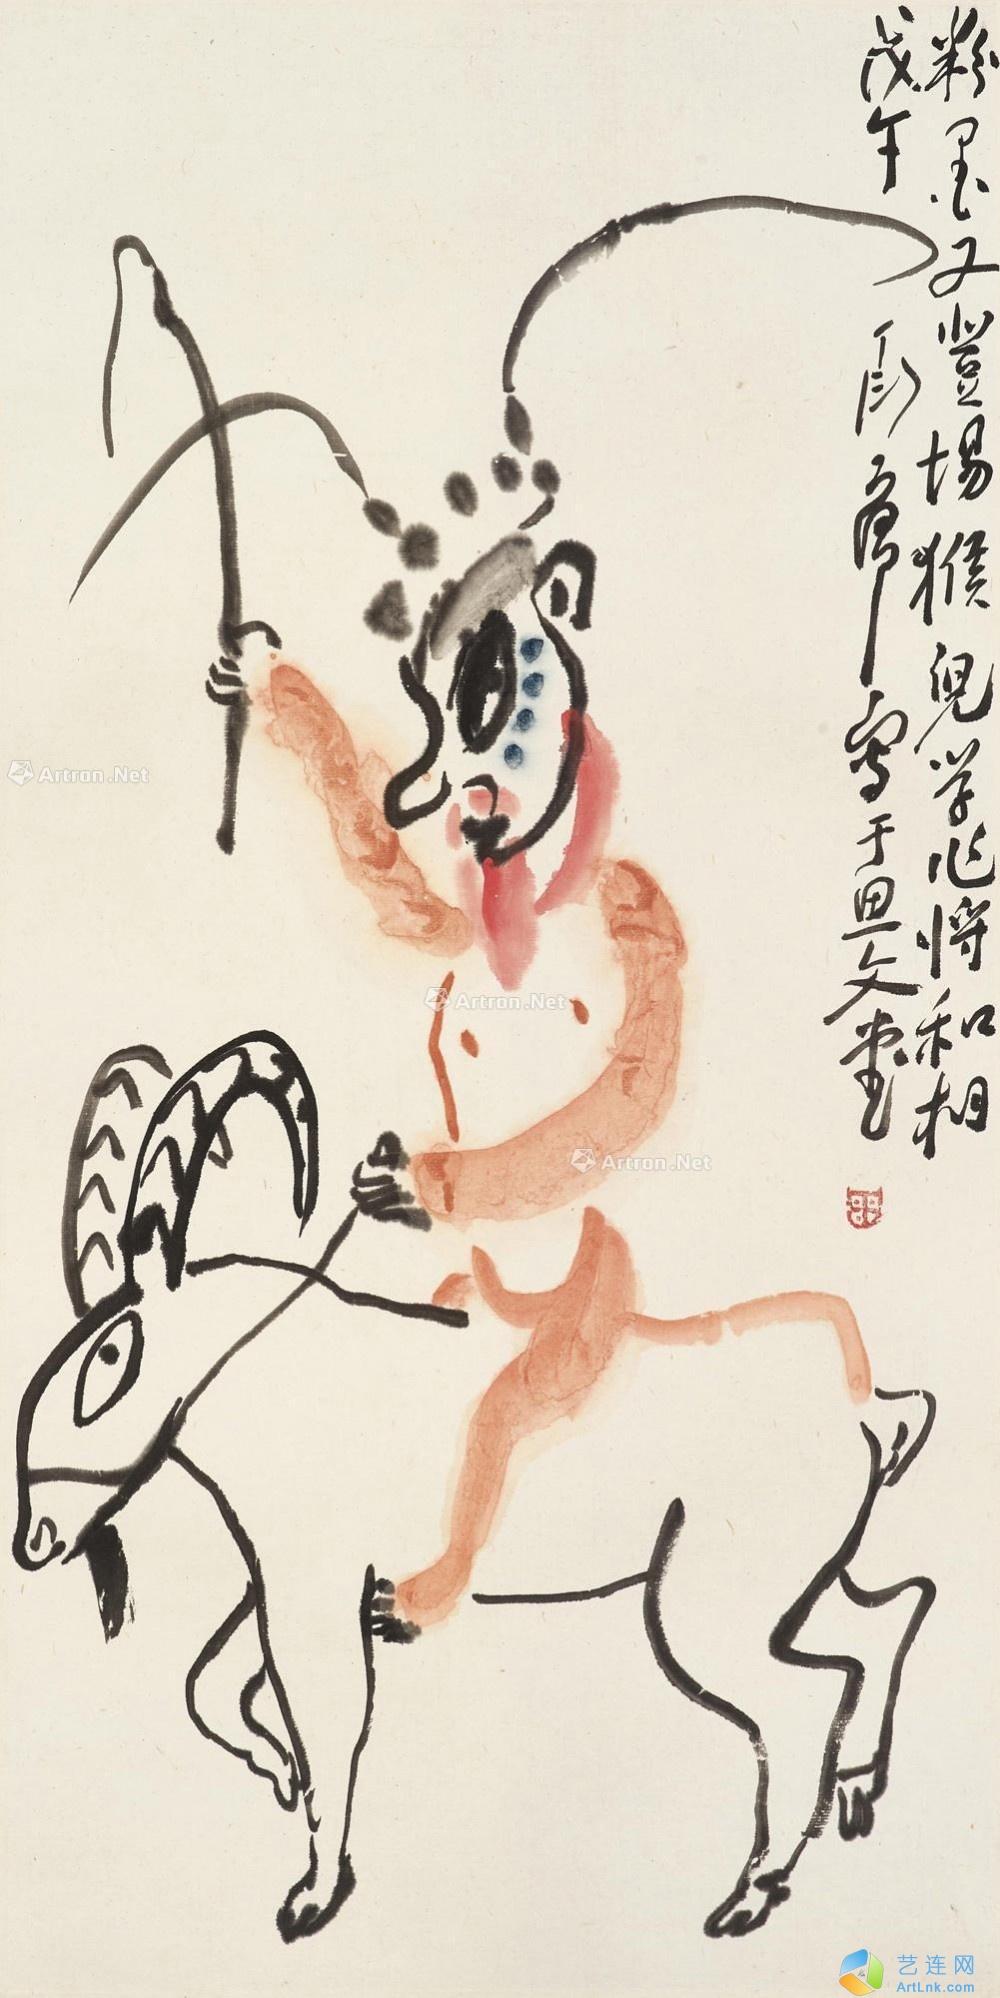 粉墨又登場猴兒学作将和相
戊午丁衍庸寫于思文堂
Artron.Net
Artron.Net
Artron.Net
艺连网
ArtLnk.com